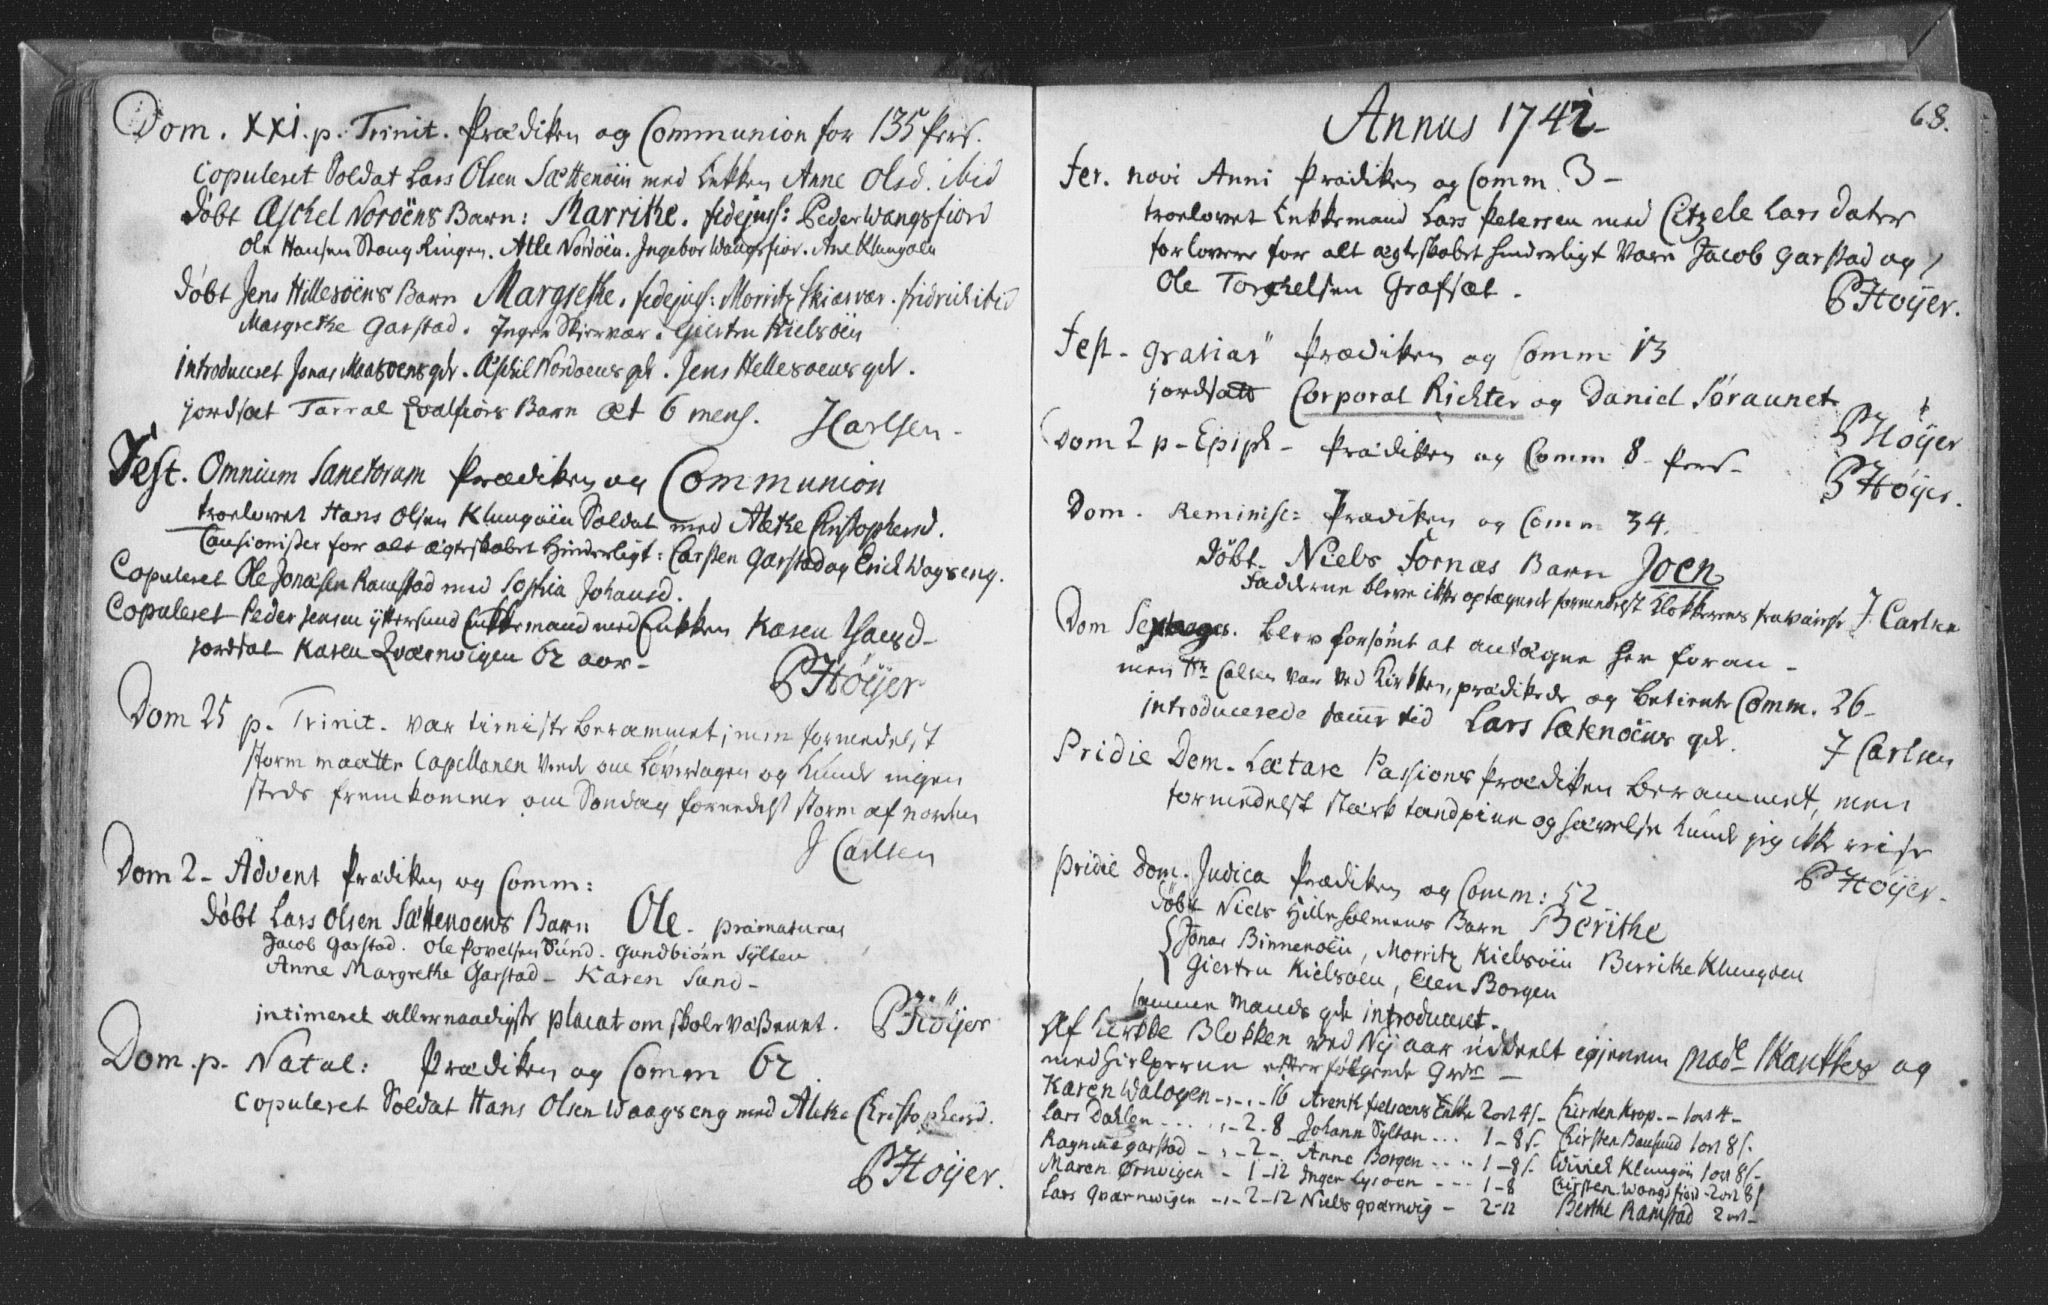 Dom. XXI. p. Trinit. Prædiken og Communion for 135 Pers.
Copuleret Soldat Lars Olsen Sættenøin med Enken Anne Olsd. ibid
døbt Æschel Norøens Barn: Marrithe. fidejuss: Peder Wangsfiord
Ole Hansen Stang Ringen. Atle Nordøen. Ingebor Wangsfior. Ane Klungøln
døbt Jens Hillesøens Barn Margrethe. fidejuss: Morritz Skiærvær. fridrich ibid
Margrethe Garstad. Inger Skiervær. Giertru Kielsøen
introduceret Jonas Maasøens qde. Æschil Nordøens qde. Jens Hellesøens qde.
jordsat Tarral Qvalfiors Barn æt 6 mens. JCarlsen
Fest. Omnium Sanctorum Prædiken og Communion
troelovet Hans Olsen Klungøin Soldat med Aletke Christophersd.
Cautionister for alt ægteskabet Hinderligt: Carsten Garstad og Erich Wogseng.
Copuleret Ole Jonasen Ramstad med Sophia Johansd.
Copuleret Peder Jensen yttersund Enkkemand med Enkken Karen Hansd
jordsat Karen Qværnvigen 62 aar
PHöyer
Dom 25 p. Trinit. var tieniste berammet; men formedelst
storm maatte Capellanen vende om Löverdagen og kunde ingen
steds fremkomme om Söndag formedelst storm af norden
J Carlsen
Dom 2 Advent Prædiken og Comm:
døbt Lars Olsen Sættenøens Barn Ole. præmaturus
Jacob Garstad. Ole Povelsen Sund. Gundbiörn Sylten
Anne Margrethe Garstad - Karen Sund -
intimeret allernaadigste placat om skolevæßenet. PHöyer
Dom. p. Natal: Prædiken og Comm 62
Copuleret Soldat Hans Olsen Waagseng med Aletke Christophersd.
PHöyer.
68.
Annus 1742
Fer. novi Anni Prædiken og Comm. 3 -
troelovet Enkkemand Lars Petersen med Citzele Lars dater
forlovere for alt ægteskabet hinderligt vare Jacob Garstad og
Ole Torchelsen Grafsæt.
PHöyer.
Fest. gratiar Prædiken og Comm 13
jordsatt Corporal Richter og Daniel Søraunet
PHöyer
Dom 2 p. Epiph. Prædiken og Comm 8 Pers
PHöyer.
Dom. Reminisc: Prædiken og Comm 34.
döbt Niels Fornæs Barn Joen
Fadderne bleve ikke optegnede formedelst Klokkerens fraværelse J. Carlsen
Dom blev forsömt at antegne her foran -
men Hr Calsen var ved Kirkken, prædikede og betiente Comm. 26
introducerede samme tid Lars Sætenøens qde.
J Carlsen
Pridie Dom. Lætare Passions Prædiken berammet, men
formedelst stærk tandpine og hævelse kunde jeg ikke reise
PHöyer.
Pridie Dom. Judica Prædiken og Comm: 52
Döbt Niels Hilleholmens Barn Berithe
Jonas Binnenøin, Morritz Kielsøin Berrithe Klungøen
Giertru Kielsøen, Elen Borgen
samme Mands qde introduceret.
Af Kirkke Blokken ved Ny aar uddeelt igjenem Madle Skankkes og
medhielperne efterfølgende Gvr
Karen Walogen - 16 Arent Pelsøens Enke 2 ort 4 s. Kirsten Krop - 1 ort 4 -
Lars Dahlen - 2 - 8 Johann Sylten 1 - 8 s. Kirsten Bausund 1 ort 8 s.
Ragnille Garstad - 2 - Anne Borgen 1 - 8 s. Wivich Klungøin 1 ort 8 s.
Maren Ørnvigen 1 - 12 Inger Lysøen 1 - 8 Kirsten Wangsfiord 2 ort 8 s
Lars Qværnvigen - 2 - 12 Niels Qværnvig - 2 - 12 Berthe Ramstad 2 ort